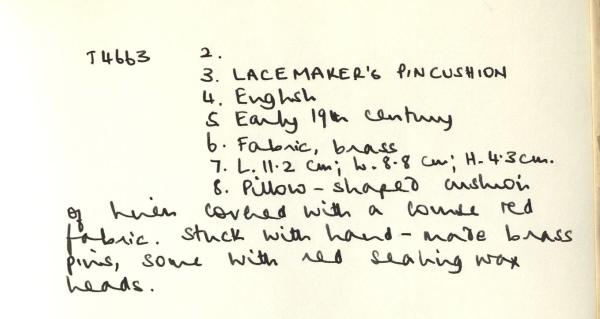 T4663 2.
3. LACEMAKER'S PINCUSHION
4. English
5 Early 19th century
6. Fabric, brass
7. L. 11.2 cm; W. 8.8 cm; H. 4.3 cm.
8. Pillow-shaped cushion
of linen covered with a course red
fabric. Stuck with hand-made brass
pins, some with red sealing wax
heads.